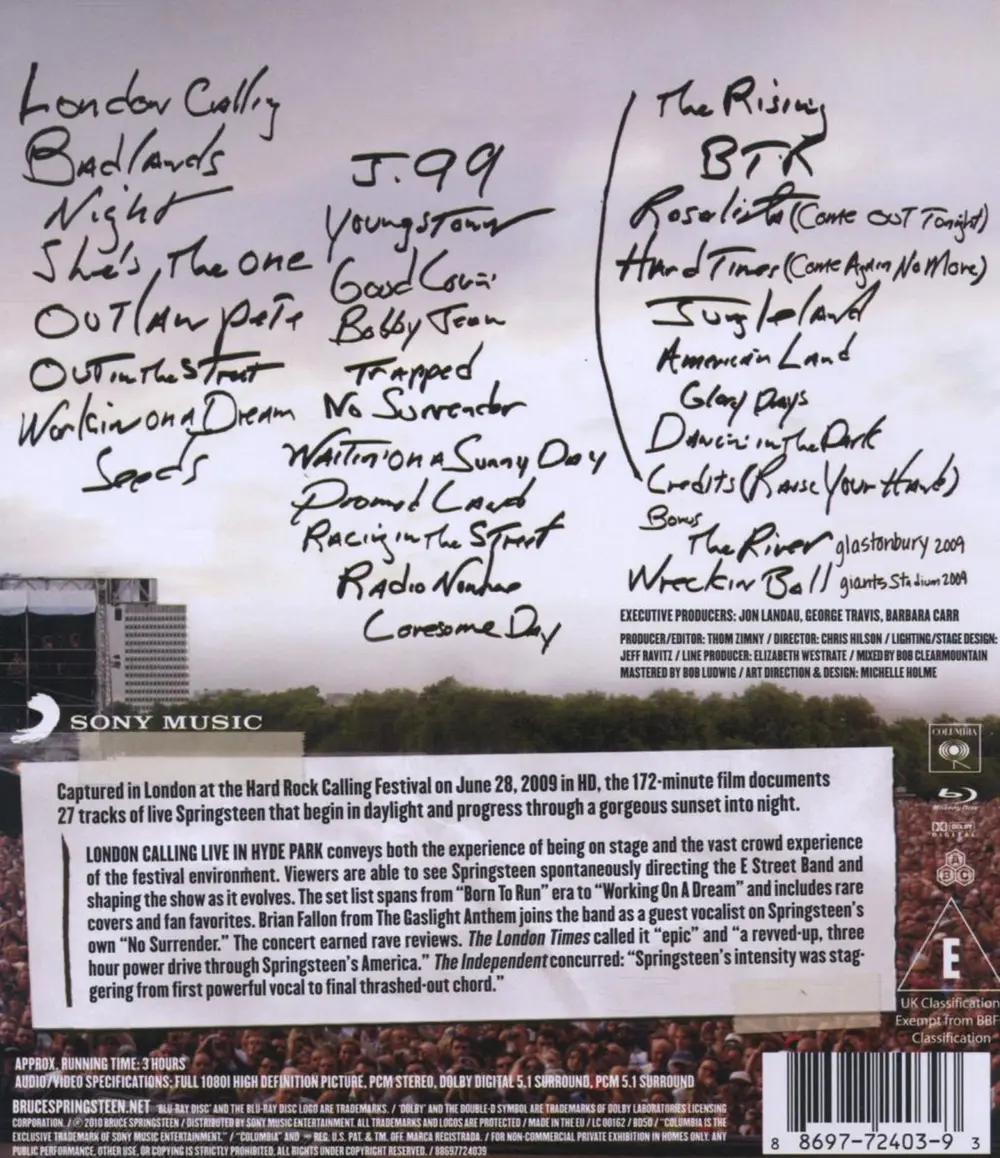 London Calling
Badlands
Night
She's the one
Outlaw Pete
Out in the Street
Workin on a Dream
Seeds
J. 99
Youngstown
Good Lovin'
Bobby Jean
Trapped
No Surrender
Waitin' on a Sunny Day
Promised Land
Racing in the Street
Radio Nowhere
Lonesome Day
The Rising
BTR
Rosalita (Come Out Tonight)
Hard Times (Come Again No More)
Jungleland
American Land
Glory Days
Dancin' in the Dark
Credits (Raise Your Hand)
Bonus
The River glastonbury 2009
Wreckin Ball giants Stadium 2009
EXECUTIVE PRODUCERS: JON LANDAU, GEORGE TRAVIS, BARBARA CARR
PRODUCER/EDITOR: THOM ZIMNY / DIRECTOR: CHRIS HILSON / LIGHTING/STAGE DESIGN:
JEFF RAVITZ / LINE PRODUCER: ELIZABETH WESTRATE / MIXED BY BOB CLEARMOUNTAIN
MASTERED BY BOB LUDWIG / ART DIRECTION & DESIGN: MICHELLE HOLME
SONY MUSIC
COLUMBIA
Blu-ray Disc
DOLBY
DIGITAL
A
B C
Captured in London at the Hard Rock Calling Festival on June 28, 2009 in HD, the 172-minute film documents
27 tracks of live Springsteen that begin in daylight and progress through a gorgeous sunset into night.
LONDON CALLING LIVE IN HYDE PARK conveys both the experience of being on stage and the vast crowd experience
of the festival environment. Viewers are able to see Springsteen spontaneously directing the E Street Band and
shaping the show as it evolves. The set list spans from "Born To Run" era to "Working On A Dream" and includes rare
covers and fan favorites. Brian Fallon from The Gaslight Anthem joins the band as a guest vocalist on Springsteen's
own "No Surrender." The concert earned rave reviews. The London Times called it "epic" and "a revved-up, three
hour power drive through Springsteen's America." The Independent concurred: "Springsteen's intensity was stag-
gering from first powerful vocal to final thrashed-out chord."
E
UK Classification
Exempt from BBF
Classification
APPROX. RUNNING TIME: 3 HOURS
AUDIO/VIDEO SPECIFICATIONS: FULL 1080I HIGH DEFINITION PICTURE, PCM STEREO, DOLBY DIGITAL 5.1 SURROUND, PCM 5.1 SURROUND
BRUCESPRINGSTEEN.NET "BLU-RAY DISC" AND THE BLU-RAY DISC LOGO ARE TRADEMARKS. / "DOLBY" AND THE DOUBLE-D SYMBOL ARE TRADEMARKS OF DOLBY LABORATORIES LICENSING
CORPORATION. / ℗ © 2010 BRUCE SPRINGSTEEN / DISTRIBUTED BY SONY MUSIC ENTERTAINMENT. ALL TRADEMARKS AND LOGOS ARE PROTECTED / MADE IN THE EU / LC 00162 / BD50 / "COLUMBIA IS THE
EXCLUSIVE TRADEMARK OF SONY MUSIC ENTERTAINMENT." / "COLUMBIA" AND REG. U.S. PAT. & TM. OFF. MARCA REGISTRADA. / FOR NON-COMMERCIAL PRIVATE EXHIBITION IN HOMES ONLY. ANY
PUBLIC PERFORMANCE, OTHER USE, OR COPYING IS STRICTLY PROHIBITED. ALL RIGHTS UNDER COPYRIGHT RESERVED. / 88697724039
8 8697-72403-9 3